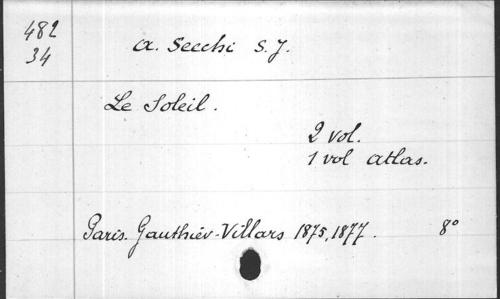 482
34
A. Secchi S. J.
Le Soleil.
2 vol.
1 vol atlas.
Paris. Gauthier-Villars 1875, 1877. 8°